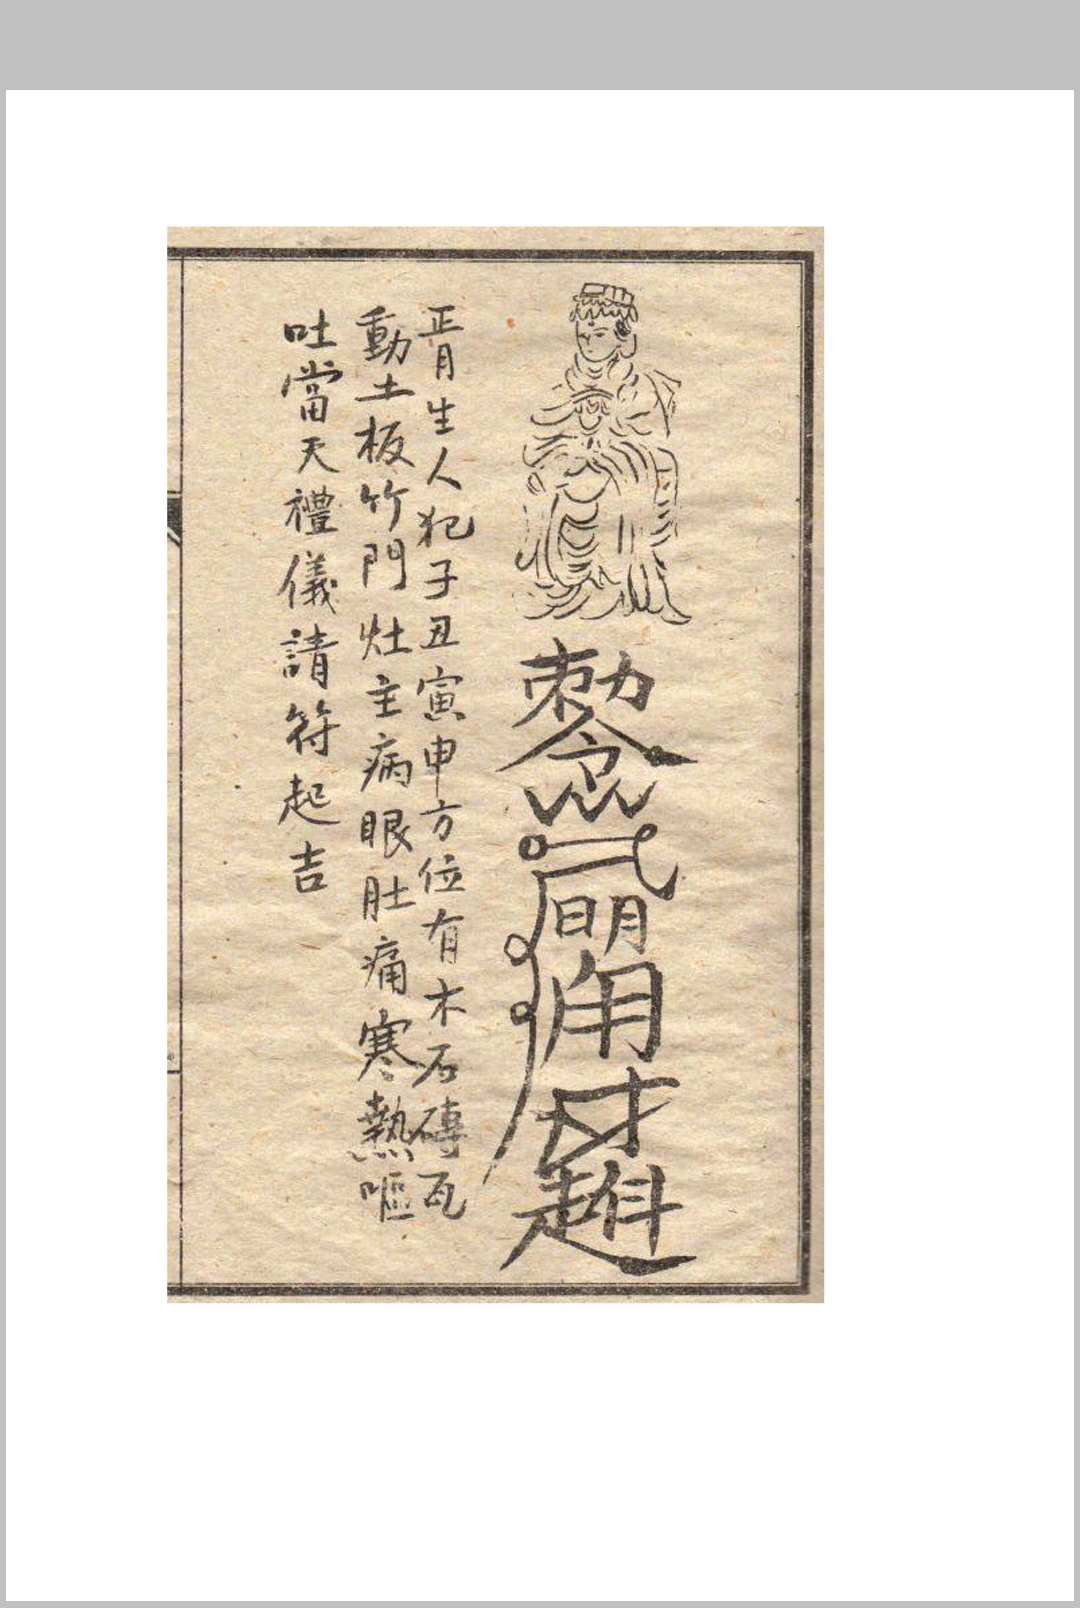 勅令
日月
正月生人犯子丑寅申方位有木石磚瓦
動土板竹門灶主病眼肚痛寒熱嘔
吐當天禮儀請符起吉